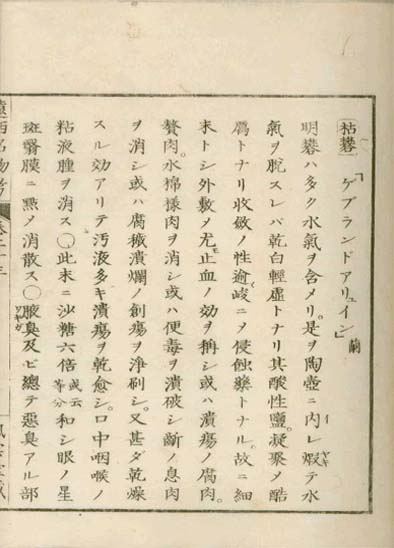 枯礬 「ケブランドアリュイン」蘭
明礬ハ多ク水氣ヲ含メリ。是ヲ陶壺ニ内レ煆テ水
氣ヲ脱スレバ乾白輕虚トナリ其酸性鹽。凝聚メ酷
厲トナリ收斂ノ性逾峻ニメ侵蝕藥トナル。故ニ細
末トシ外敷メ尤モ止血ノ効ヲ稱シ或ハ潰瘍ノ腐肉。
贅肉。水棉様肉ヲ消シ或ハ便毒ヲ潰破シ齗ノ息肉
ヲ消シ或ハ腐穢潰爛ノ創瘍ヲ淨刷シ。又甚ダ乾燥
スル効アリテ汚液多キ潰瘍ヲ乾愈シ。口中咽喉ノ
粘液腫ヲ消ス○此末ニ沙糖六倍 或云等分 和シ眼ノ星
斑翳膜ニ點メ消散ス○腋臭及ビ總テ惡臭アル部
遠西名物考 卷二十三